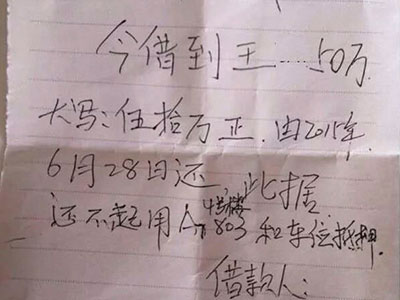 今借到王 50万
大写:伍拾万正.由2015年
6月28日还,此据
还不起用A 803 和车位抵押.
借款人: